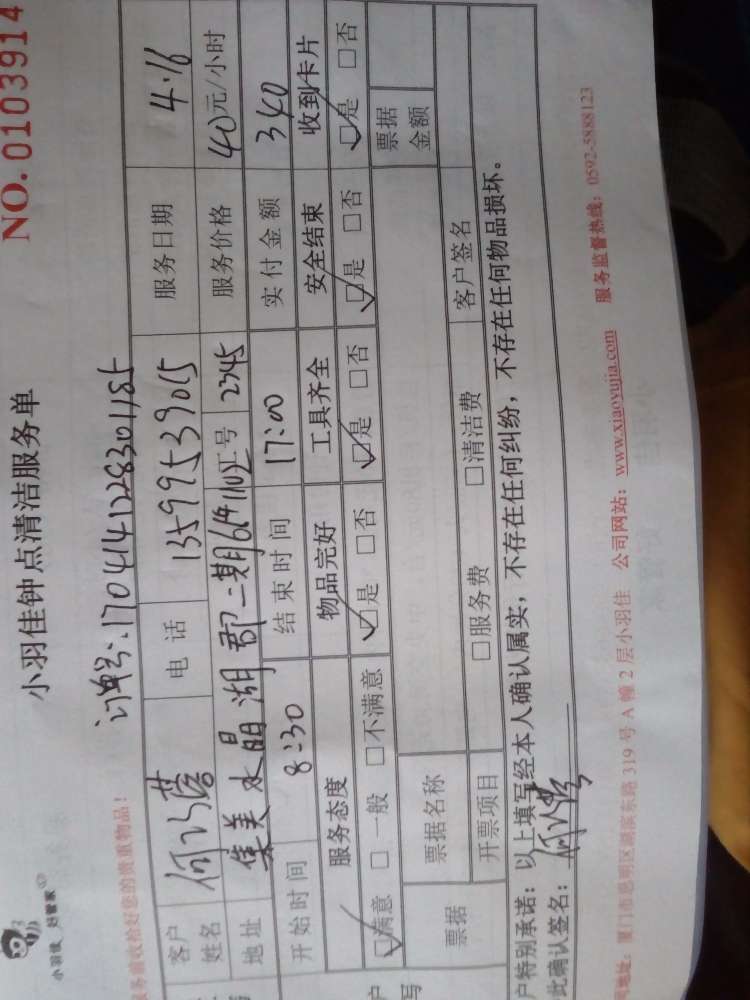 NO. 0103914
小羽佳 好管家
小羽佳钟点清洁服务单
订单号:1704141228301185
服务前收拾好您的贵重物品!
客户姓名 电话 13599539015 服务日期 4.16
地址 集美水晶湖郡二期 工号 2345 服务价格 40元/小时
开始时间 8:30 结束时间 17:00 实付金额 340
服务态度 物品完好 工具齐全 安全结束 收到卡片
☑满意 □一般 □不满意 ☑是 □否 ☑是 □否 ☑是 □否 ☑是 □否
票据 票据名称 票据金额
开票项目 □服务费 □清洁费 客户签名
户特别承诺:以上填写经本人确认属实,不存在任何纠纷,不存在任何物品损坏。
此确认签名:
地址:厦门市思明区湖滨东路 319 号 A 幢 2 层小羽佳 公司网站:www.xiaoyujia.com 服务监督热线:0592-5888123